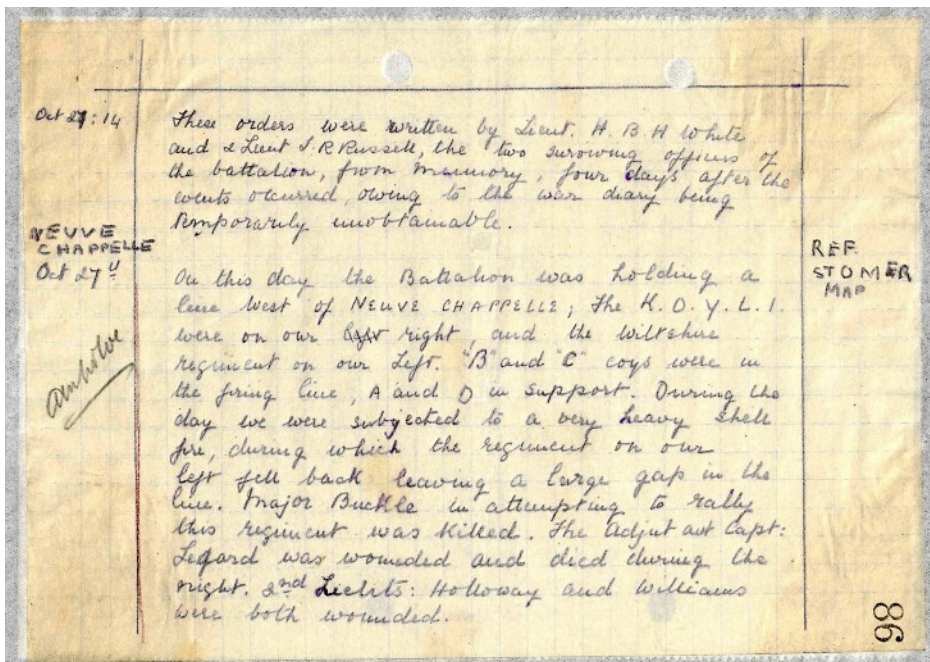 Oct 27:14
These orders were written by Lieut. H. B. H White
and 2 Lieut J. R Russell, the two surviving officers of
the battalion, from memory, four days after the
events ocurred, owing to the war diary being
temporarily unobtainable.
NEUVE
CHAPPELLE
Oct 27th
REF.
ST OMER
MAP
On this day the Battalion was holding a
line West of NEUVE CHAPPELLE; The K.O.Y.L.I.
were on our right, and the Wiltshire
regiment on our left. "B" and "C" coys were in
the firing line, A and D in support. During the
day we were subjected to a very heavy shell
fire, during which the regiment on our
left fell back leaving a large gap in the
line. Major Buckle in attempting to rally
this regiment was killed. The Adjutant Capt:
Legard was wounded and died during the
night. 2nd Lieuts: Holloway and Williams
were both wounded.
98